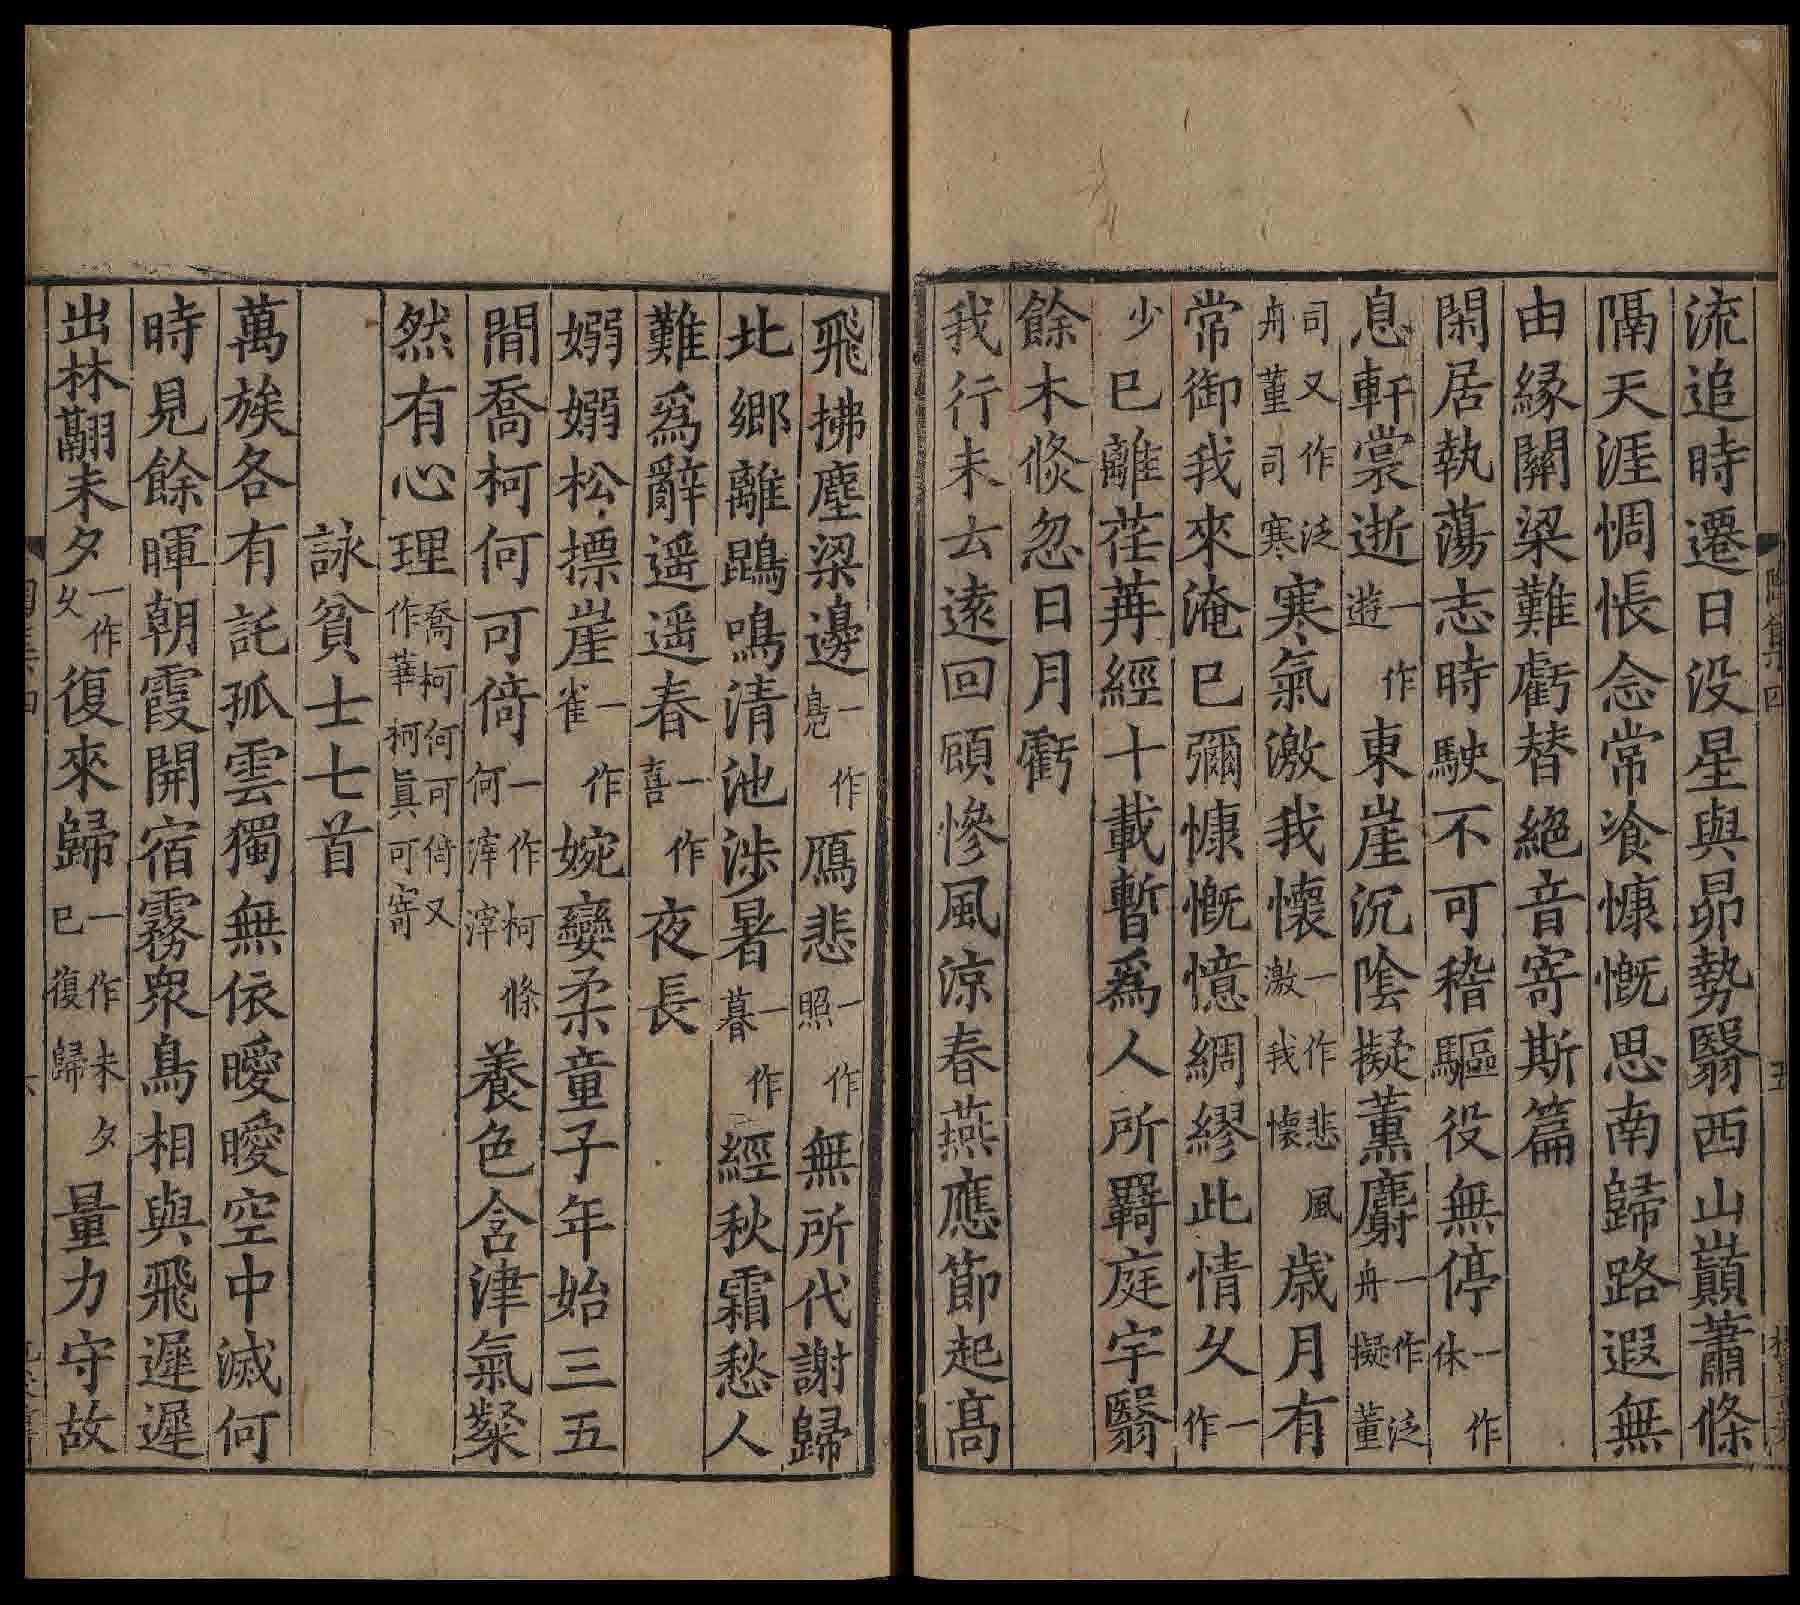 流追時遷日没星與昴勢翳西山巔蕭條
隔天涯惆悵念常飡慷慨思南歸路遐無
由縁關梁難虧替絶音寄斯篇
閑居執蕩志時駛不可稽驅役無停一作休
息軒裳逝一作遊東崖沉隂擬薰麝一作泛舟擬董
司又作泛舟董司寒寒氣激我懷一作悲風激我懷歳月有
常御我來淹已彌慷慨憶綢繆此情久一作
少已離荏苒經十載暫爲人所羇庭宇翳
餘木倐忽日月虧
我行未云逺回頋慘風涼春燕應節起髙
飛拂塵梁邊一作鳬鴈悲一作照無所代謝歸
北鄉離鵾鳴清池涉暑一作暮經秋霜愁人
難爲辭遥遥春一作喜夜長
嫋嫋松摽崖一作雀婉孌柔童子年始三五
間喬柯何可倚一作柯條何滓滓養色含津氣粲
然有心理喬柯何可倚又作華柯眞可寄
詠貧士七首
萬族各有託孤雲獨無依曖曖空中滅何
時見餘暉朝霞開宿霧衆鳥相與飛遲遲
出林翮未夕一作久復來歸一作未夕已復歸量力守故